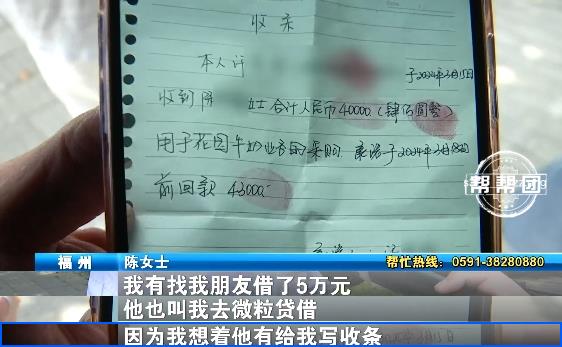 收条
本人叶
于2024年3月15日
收到陈 女士合计人民币40000(肆佰圆整)
用于花园牛奶业务的采购 承诺于2024年3月18日
前回款 43000
帮帮团
福州 陈女士 帮忙热线：0591-38280880
我有找我朋友借了5万元
他也叫我去微粒贷借
因为我想着他有给我写收条